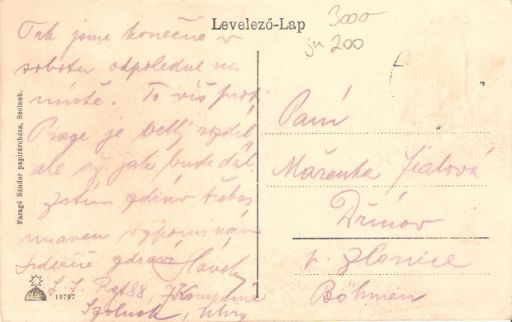 Levelező-Lap
3000
200
Tak jsme konečně v
sobotu odpoledne na
místě. To víš proti
Praze je velký rozdíl
ale což jak bude dál.
zdráv třebas
unaven vzpomínám
Srdečně zdraví Slávek
I. R. 88, 7 Komp
Szolnok, Uhry
Paní
Mařenka Fialová
Dřínov
p. Zlonice
Böhmen
Faragó Sándor papiráruháza, Szolnok.
19797